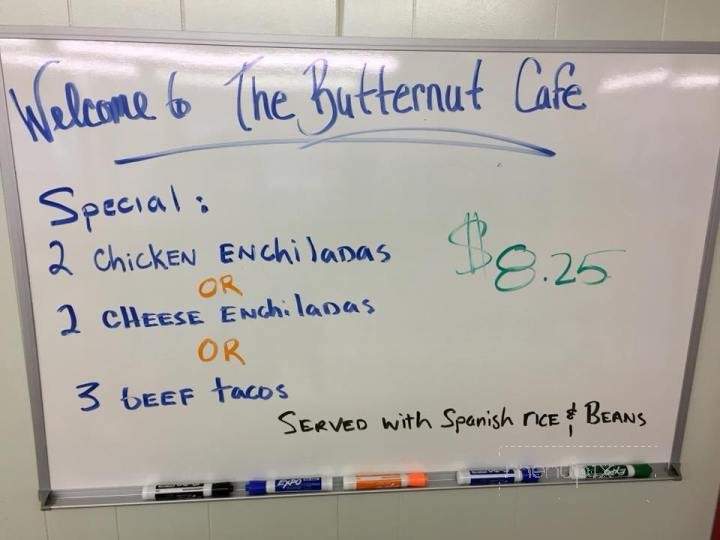 Welcome to The Butternut Cafe
Special:
2 Chicken Enchiladas
$8.25
OR
2 CHEESE Enchiladas
OR
3 bEEF tacos
SERVED with Spanish rice & BEANS
EXPO